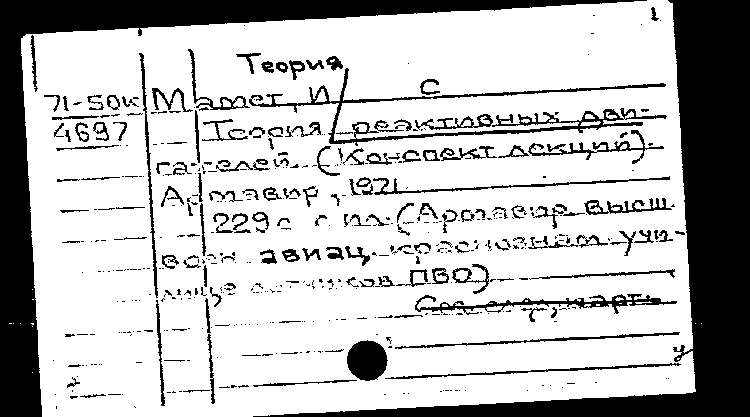 1
Теория
71-50к Мамет, И С
4697 Теория реактивных дви-
гателей. (Конспект лекций).
Армавир, 1971.
229 с. с ил. (Армавир. высш.
воен. авиац. краснознам. учи-
лище летчиков ПВО)
См. след. карт.